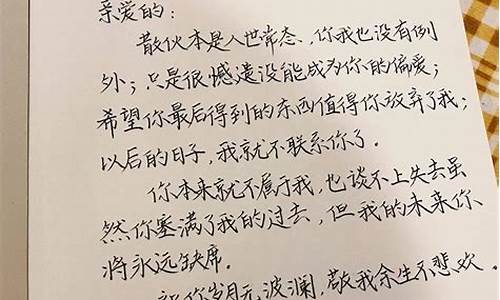 亲爱的：
散伙本是人世常态、你我也没有例
外；只是很憾遗没能成为你的偏爱；
希望你最后得到的东西值得你放弃了我；
以后的日子，我就不联系你了．
你本来就不属于我，也谈不上失去虽
然你塞满了我的过去，但我的未来你
将永远缺席．
祝你岁月无波澜，敬我余生不悲欢．